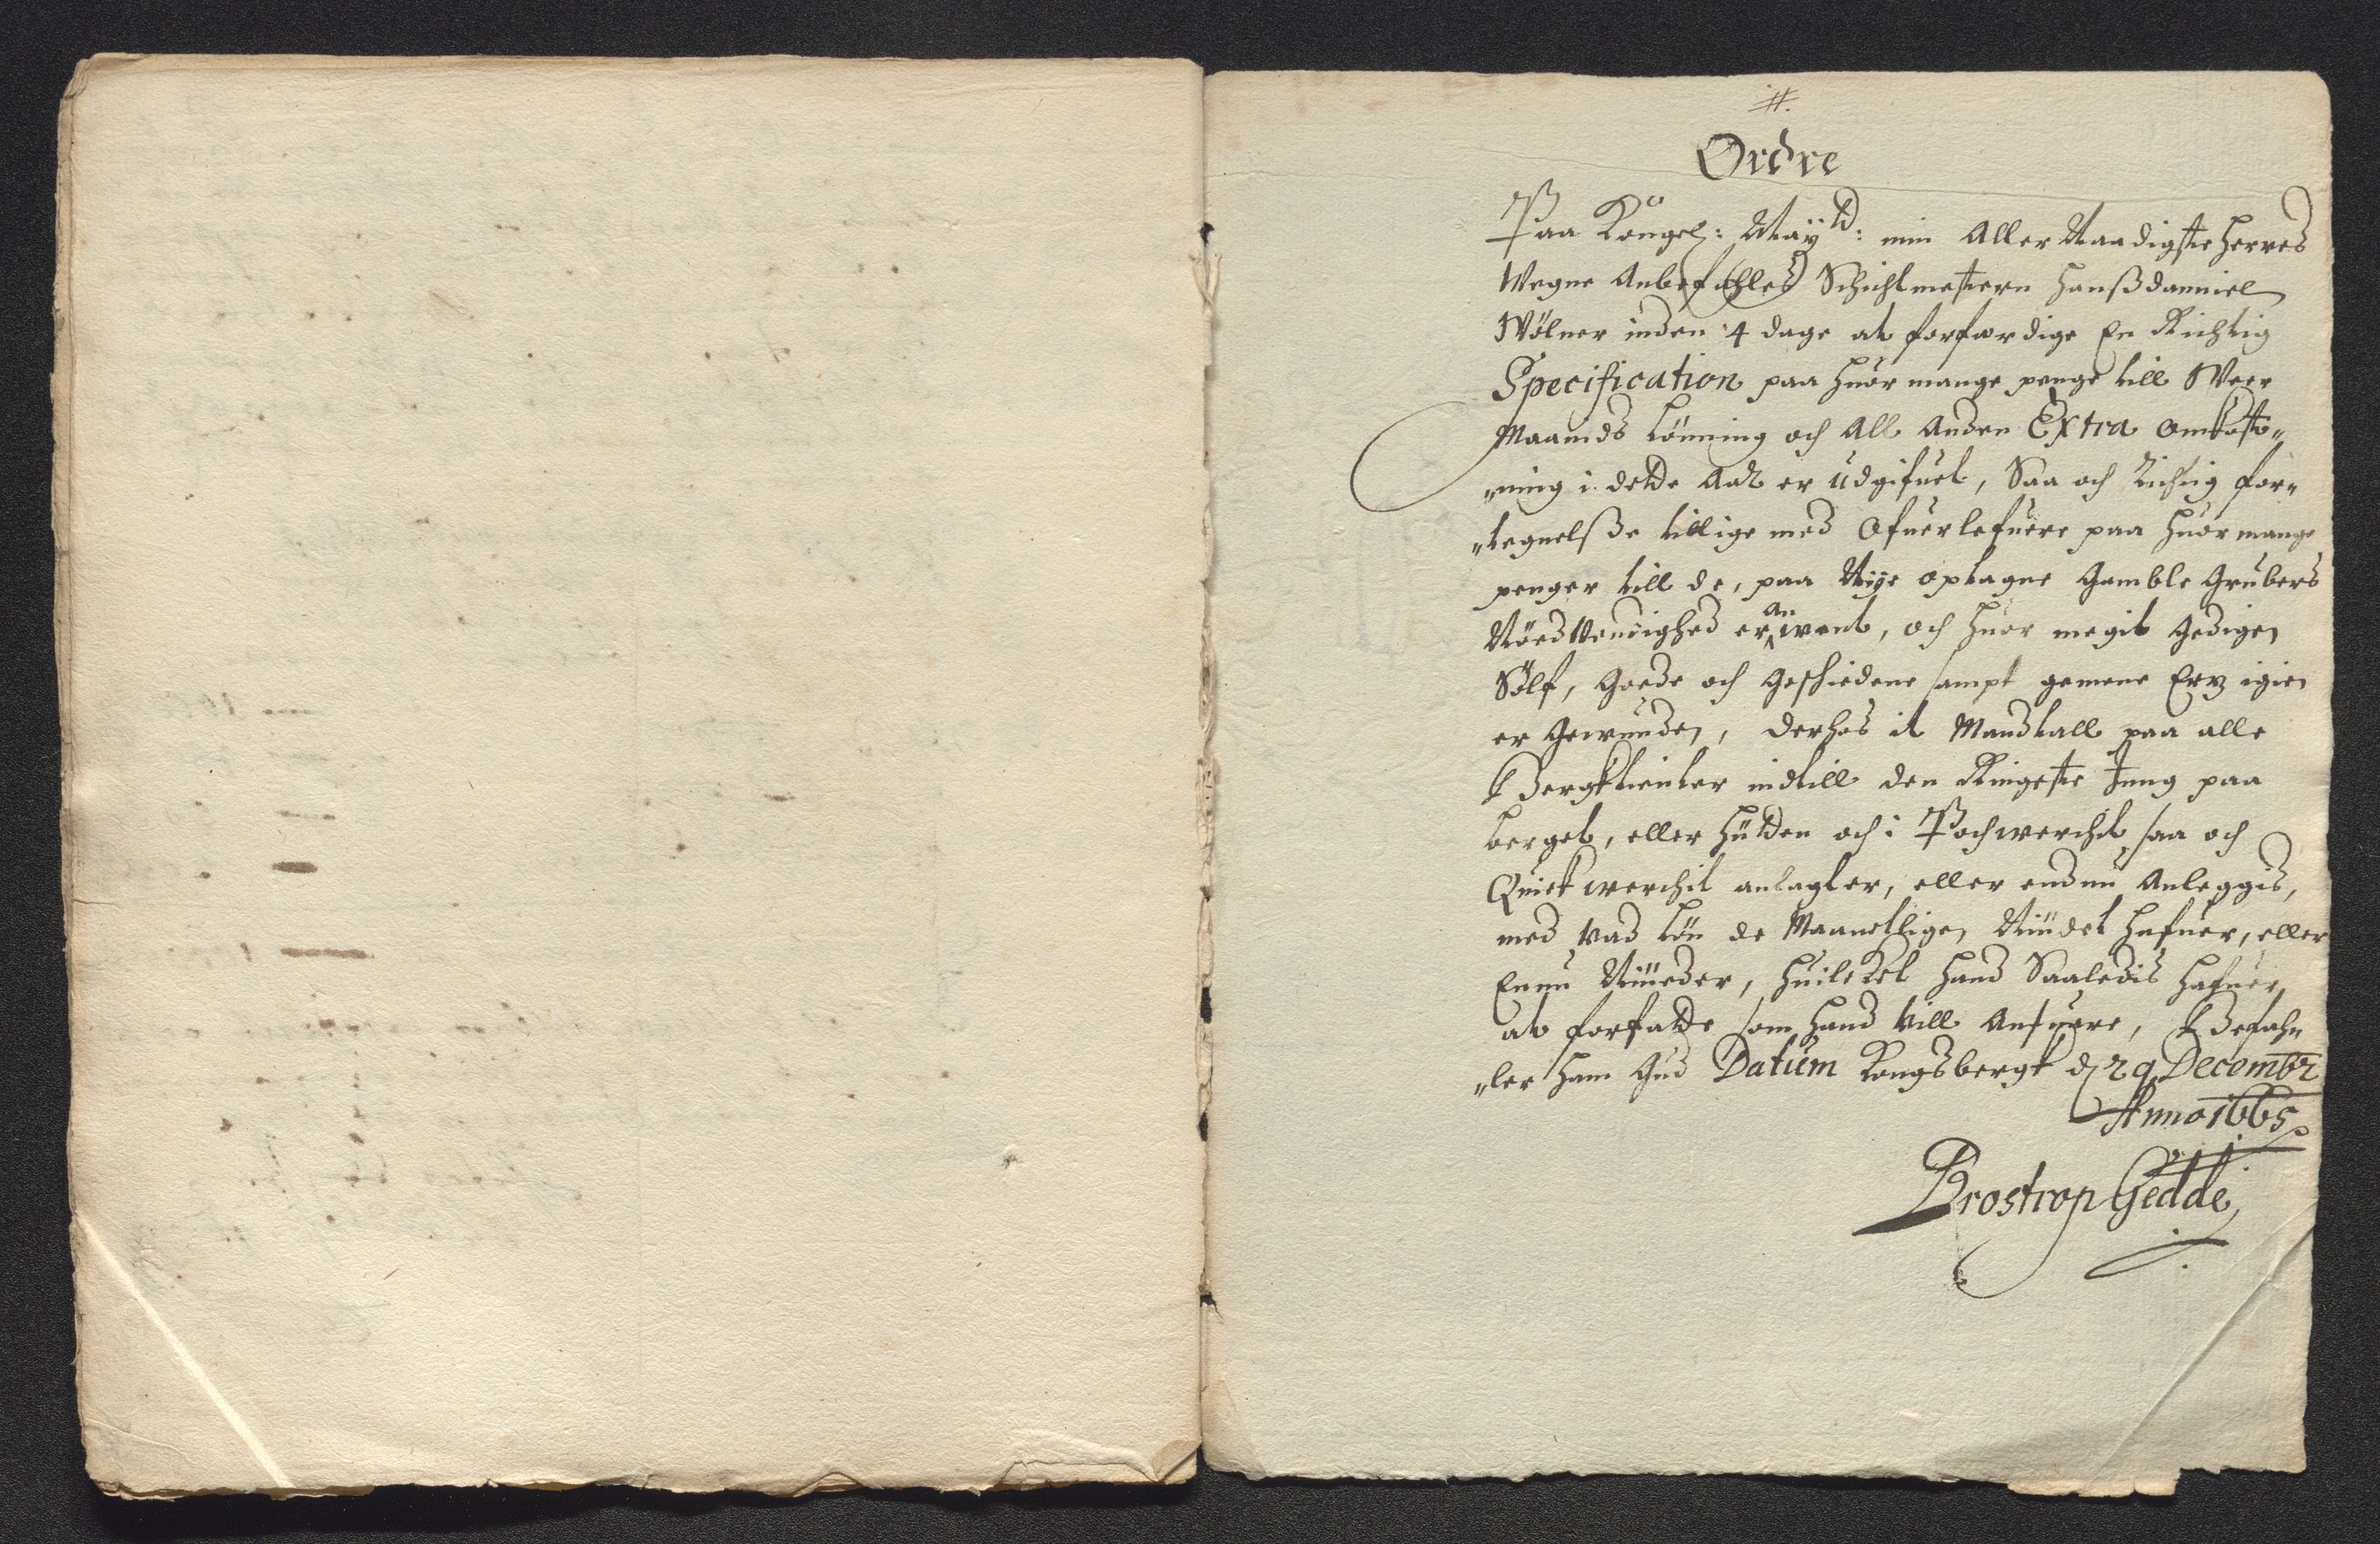 #.
Ordre
Paa Kongel: Mayᵗᵈ: min Aller Naadigste Herres
Wegne Anbefahles Schichtmestern Hanß Danniel
Wölner inden 4 dage at forfærdige En Richtig
Specification paa huor mange penge till Werr
Maamds Lönning och All Anden Extra omkost„
„ning i dette Aar er udgifuet, Saa och Richtig for„
„tegnelsse tillige med Ofuerlefuere paa huor mange
penger till de, paa Nye optagne Gamble Grubers
Nöedtvendighed er an went, och huor megit Gedigen
Sölf, Goede och Geschiedene sampt gemene Ertz igien
er Gewunden, derhos it Mandtall paa alle
Bergktienter indtill den Ringeste Jung paa
berget, eller Hütten och i Pochwerchit, saa och
Quickwerchit anlagt er, eller endnu Anleggis,
med vad Lön de Maanetligen Nündet hafuer, eller
Ennu Nüneder, huilcket hand Saaledis hafuer
at forfatte som hand vill Ansuare, Befahl„
„ler ham Gud Datum Kongsbergk d 29 Decembr
Anno 1665
Brostrop Gedde